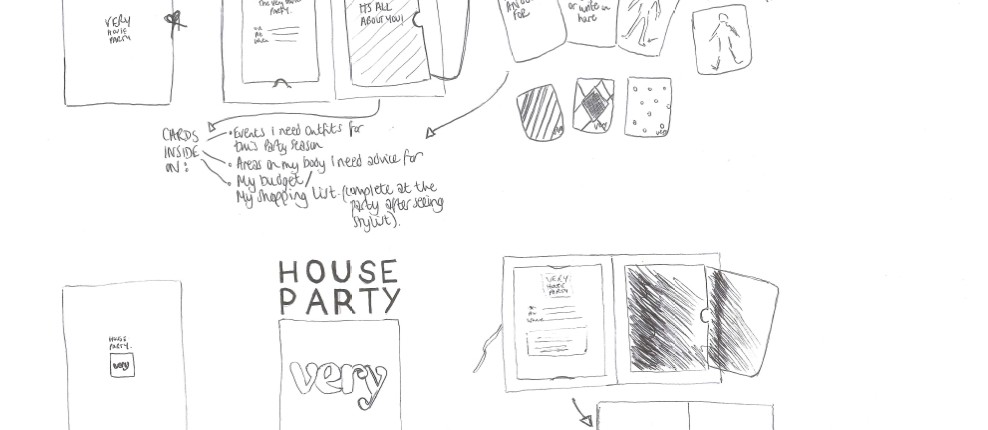 VERY
HOUSE
PARTY
The Very House
PARTY.
IT'S ALL
ABOUT YOU!
FOR
or write in
here
CARDS
INSIDE
ON:
• Events I need outfits for
this Party Season
• Areas on my body I need advice for
• My budget /
My Shopping List (complete at the
party after seeing
stylist).
HOUSE
PARTY.
very
HOUSE
PARTY
very
VERY
HOUSE
PARTY